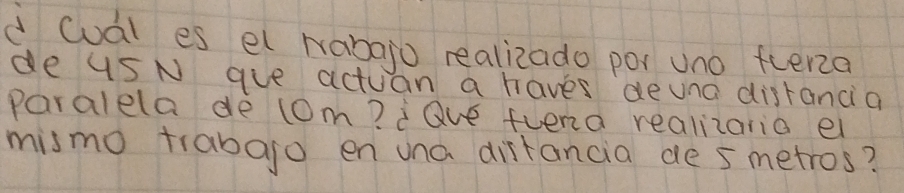 ¿ Cuál es el trabajo realizado por una fuerza
de 45N que actúan a través de una distancia
paralela de 10m? ¿ Qué fuerza realizaria el
mismo trabajo en una distancia de 5 metros?